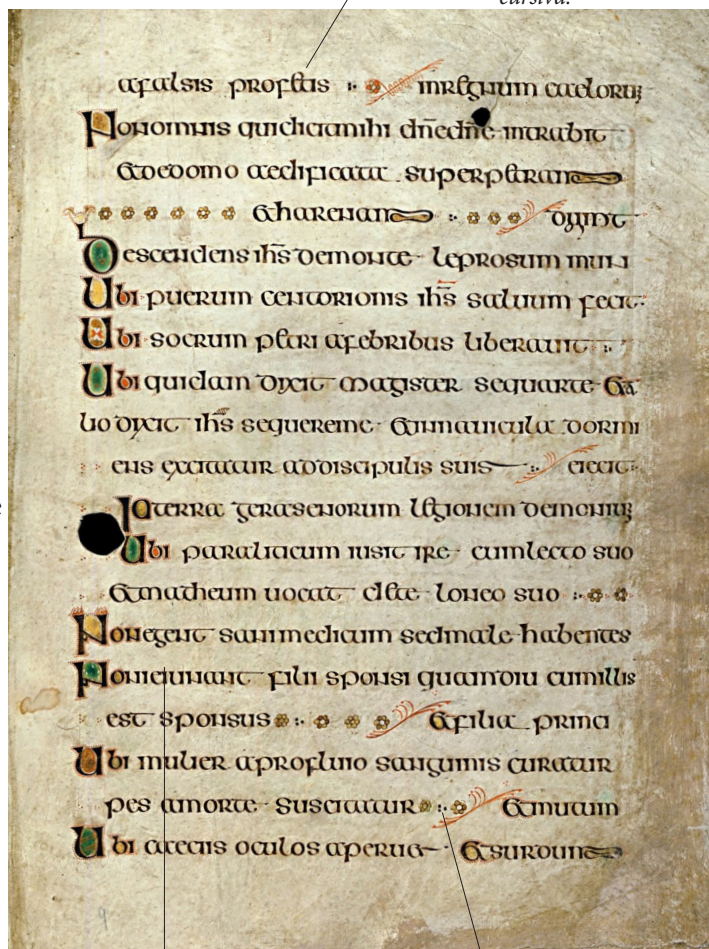 cursiva.
afalsis profetis inregnum caelorum
Nonomnis quidicitmihi dnedne intrabit
Etdedomo aedificata superpetram
Etharenam dixit
Descendens ihs demonte leprosum mun
Ubi puerum centorionis ihs saluum fecit
Ubi socrum petri afebribus liberauit
Ubi quidam dixit magister sequarte Et
lio dixit ihs sequereme Etinnauicula dormi
ens excitatur addiscipulis suis eiecit
Interra gerasenorum legionem demoniu
Ubi paraliticum iusit ire cumlecto suo
Etmatheum uocat deteloneo suo
Nonegent sanimedicum sedmale habentes
Nonieiunant filii sponsi quamdiu cumillis
est sponsus Etfilia princi
Ubi mulier aprofluuio sanguinis curatur
pes amorte suscitatur Etmutum
Ubi caecis oculos aperuit Etsurdum
9